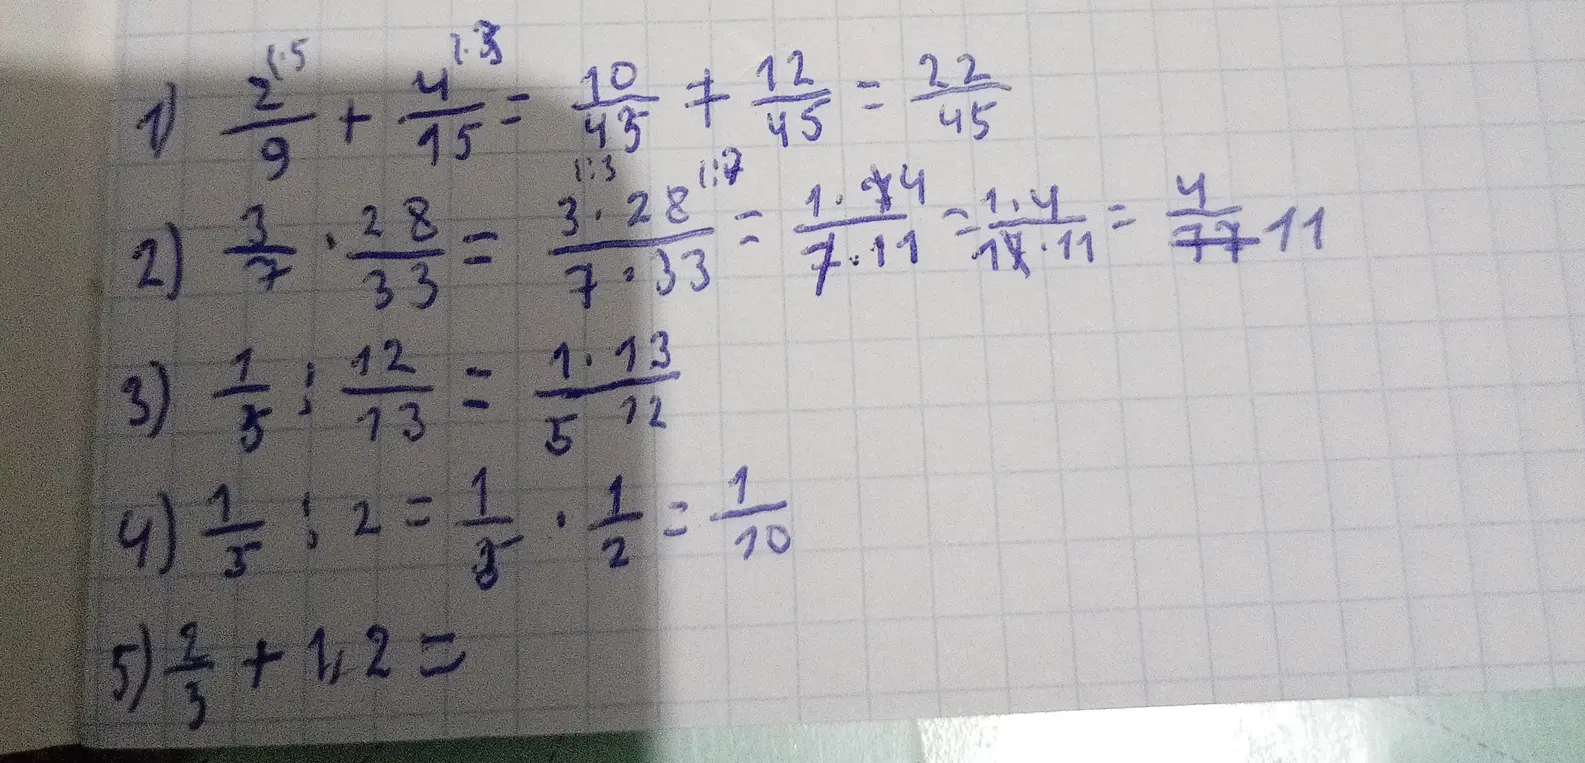 1) 2/9 |·5 + 4/15 |·3 = 10/45 + 12/45 = 22/45
2) 3/7 · 28/33 = 3·28/7·33 |:3 |:7 = 1·4/7·11 = 1·4/1·11 = 4/11
3) 1/5 : 12/13 = 1·13/5 12
4) 1/5 : 2 = 1/5 · 1/2 = 1/10
5) 2/3 + 1,2 =